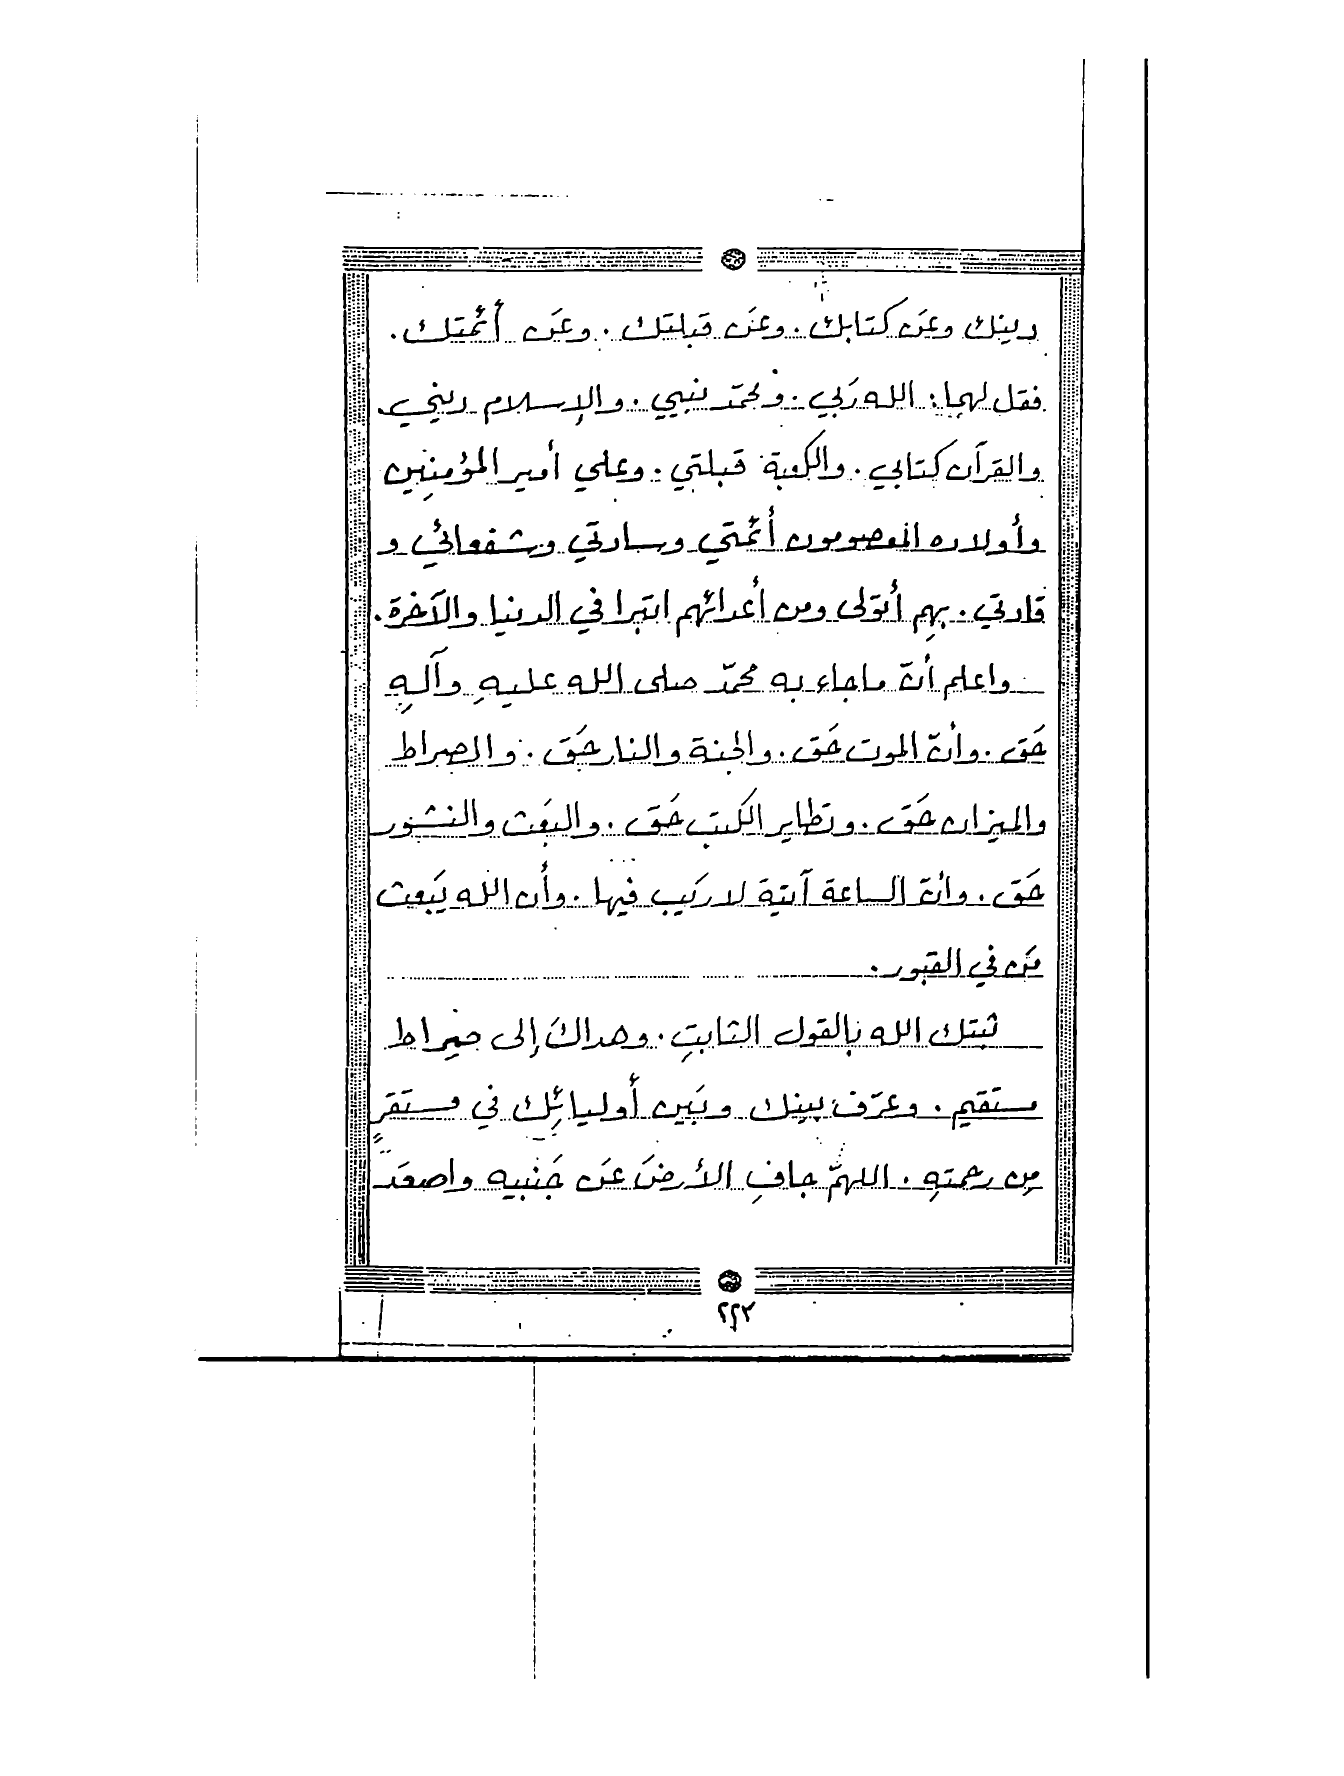 دينك وعَن كتابك. وعَن قبلتك. وعَن أئمتك.
فقل لهما: الله رَبي. ومحمّد نبيي. والإسلام ديني.
والقرآن كتابي. والكعبة قبلتي. وعلي أمير المؤمنين
وأولاده المعصومون أئمتي وسادتي وشفعائي و
قادتي. بهم أتولى ومن أعدائهم اتبرا في الدنيا والآخرة.
واعلم أنّ ما جاء به محمّد صلى الله عليهِ وآلهِ
حَق. وأنّ الموت حَق. والجنة والنار حَق. والصراط
والميزان حَق. وتطاير الكتب حَق. والبَعث والنشور
حَق. وانّ الساعة آتية لا ركيب فيها. وأن الله يَبعث
مَن في القبور.
ثبتك الله بالقول الثابتِ. وهداكَ إلى صِراط
مستقيم. وعرّف بينك وبَين أوليائِك في مستَقرٍ
مِن رحمتهِ. اللهمّ جافِ الأرضَ عَن جَنبيه واصعَد
٢٢٣